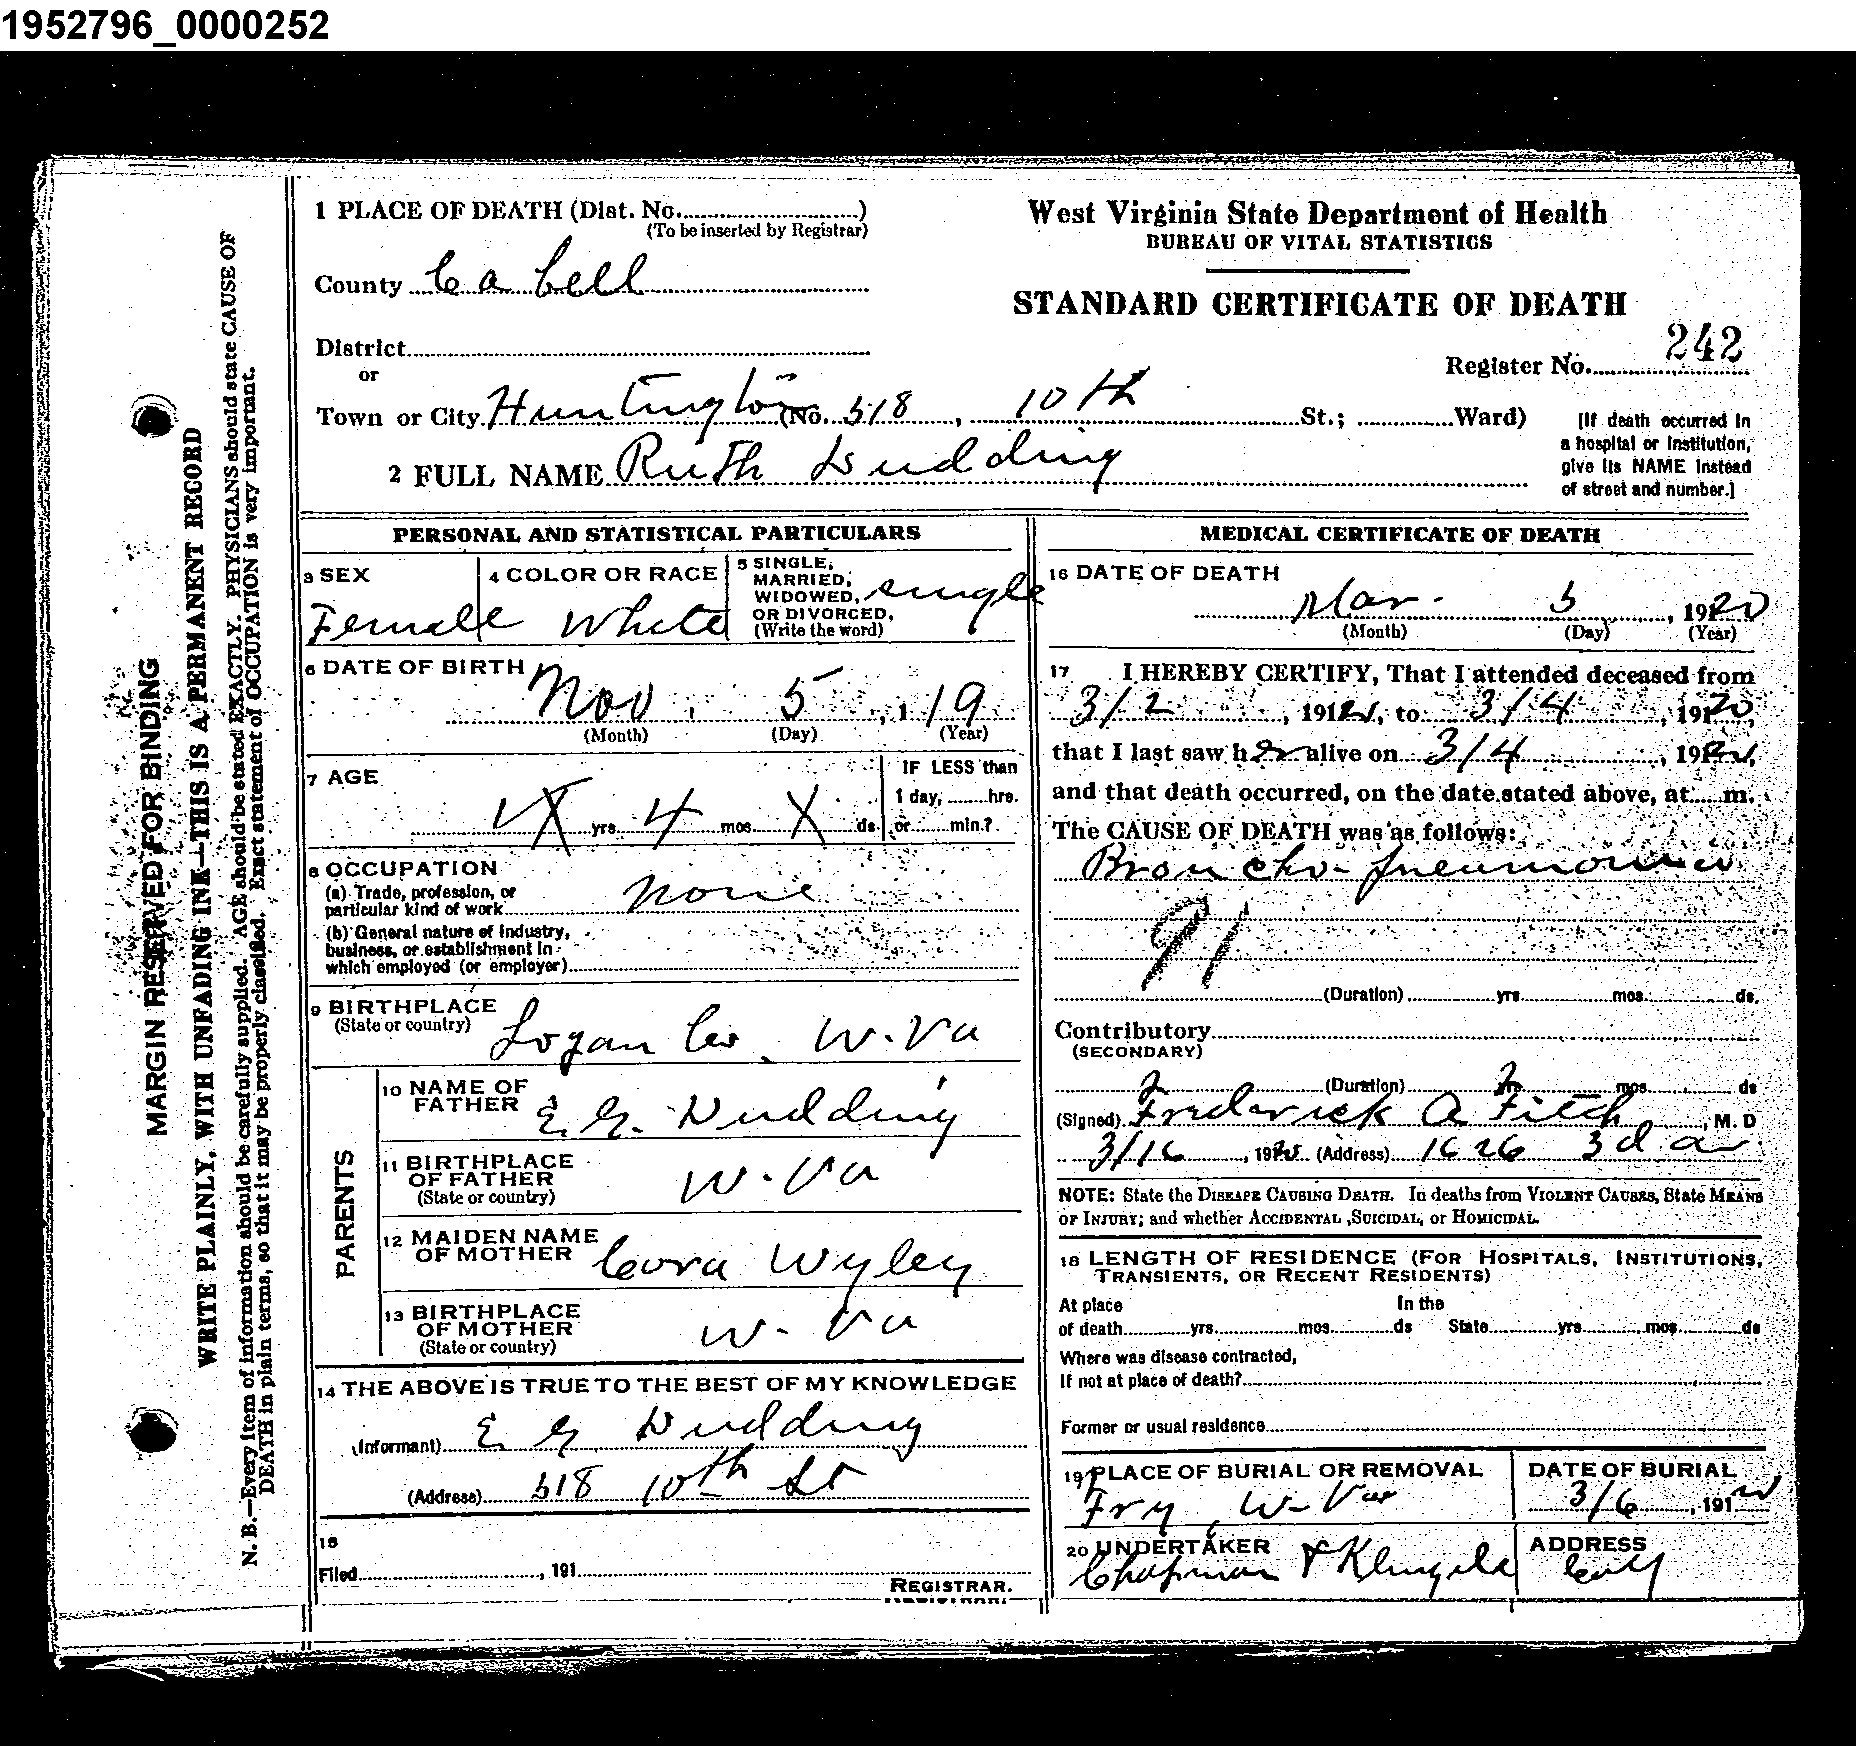 1952796_0000252
1 PLACE OF DEATH (Dist. No.)
(To be inserted by Registrar)
County Cabell
District
or
Town or City Huntington (No. 518, 10th St.; Ward)
2 FULL NAME Ruth Dudding
West Virginia State Department of Health
BUREAU OF VITAL STATISTICS
STANDARD CERTIFICATE OF DEATH
Register No. 242
[If death occurred in
a hospital or institution,
give its NAME instead
of street and number.]
MARGIN RESERVED FOR BINDING
WRITE PLAINLY, WITH UNFADING INK—THIS IS A PERMANENT RECORD
N. B.—Every item of information should be carefully supplied. AGE should be stated EXACTLY. PHYSICIANS should state CAUSE OF
DEATH in plain terms, so that it may be properly classified. Exact statement of OCCUPATION is very important.
PERSONAL AND STATISTICAL PARTICULARS
3 SEX
Female
4 COLOR OR RACE
White
5 SINGLE,
MARRIED,
WIDOWED,
OR DIVORCED,
(Write the word)
single
6 DATE OF BIRTH
Nov. 5, 1 19
(Month) (Day) (Year)
7 AGE
X yrs. 4 mos. X ds.
IF LESS than
1 day, hrs.
or min.?
8 OCCUPATION
(a) Trade, profession, or
particular kind of work none
(b) General nature of industry,
business, or establishment in
which employed (or employer)
9 BIRTHPLACE
(State or country) Logan Co. W. Va
PARENTS
10 NAME OF
FATHER E. G. Dudding
11 BIRTHPLACE
OF FATHER
(State or country) W. Va
12 MAIDEN NAME
OF MOTHER Cora Wyley
13 BIRTHPLACE
OF MOTHER
(State or country) W. Va
14 THE ABOVE IS TRUE TO THE BEST OF MY KNOWLEDGE
(Informant) E G Dudding
(Address) 518 10th St
15
Filed, 191
REGISTRAR.
MEDICAL CERTIFICATE OF DEATH
16 DATE OF DEATH
Mar. 5, 1920
(Month) (Day) (Year)
17 I HEREBY CERTIFY, That I attended deceased from
3/2, 1920, to 3/4, 1920,
that I last saw her alive on 3/4, 1920,
and that death occurred, on the date stated above, at m.
The CAUSE OF DEATH was as follows:
Broncho-pneumonia
91
(Duration) yrs. mos. ds.
Contributory
(SECONDARY)
(Duration) yrs. mos. ds
(Signed) Frederick A Fitch, M. D
3/16, 1920 (Address) 1626 3d a
NOTE: State the DISEASE CAUSING DEATH. In deaths from VIOLENT CAUSES, State MEANS
OF INJURY; and whether ACCIDENTAL, SUICIDAL, or HOMICIDAL.
18 LENGTH OF RESIDENCE (FOR HOSPITALS, INSTITUTIONS,
TRANSIENTS, OR RECENT RESIDENTS)
At place In the
of death yrs. mos. ds State yrs. mos. ds
Where was disease contracted,
If not at place of death?
Former or usual residence
19 PLACE OF BURIAL OR REMOVAL
Fry, W-Va
DATE OF BURIAL
3/6, 1920
20 UNDERTAKER
Chapman &
ADDRESS
City